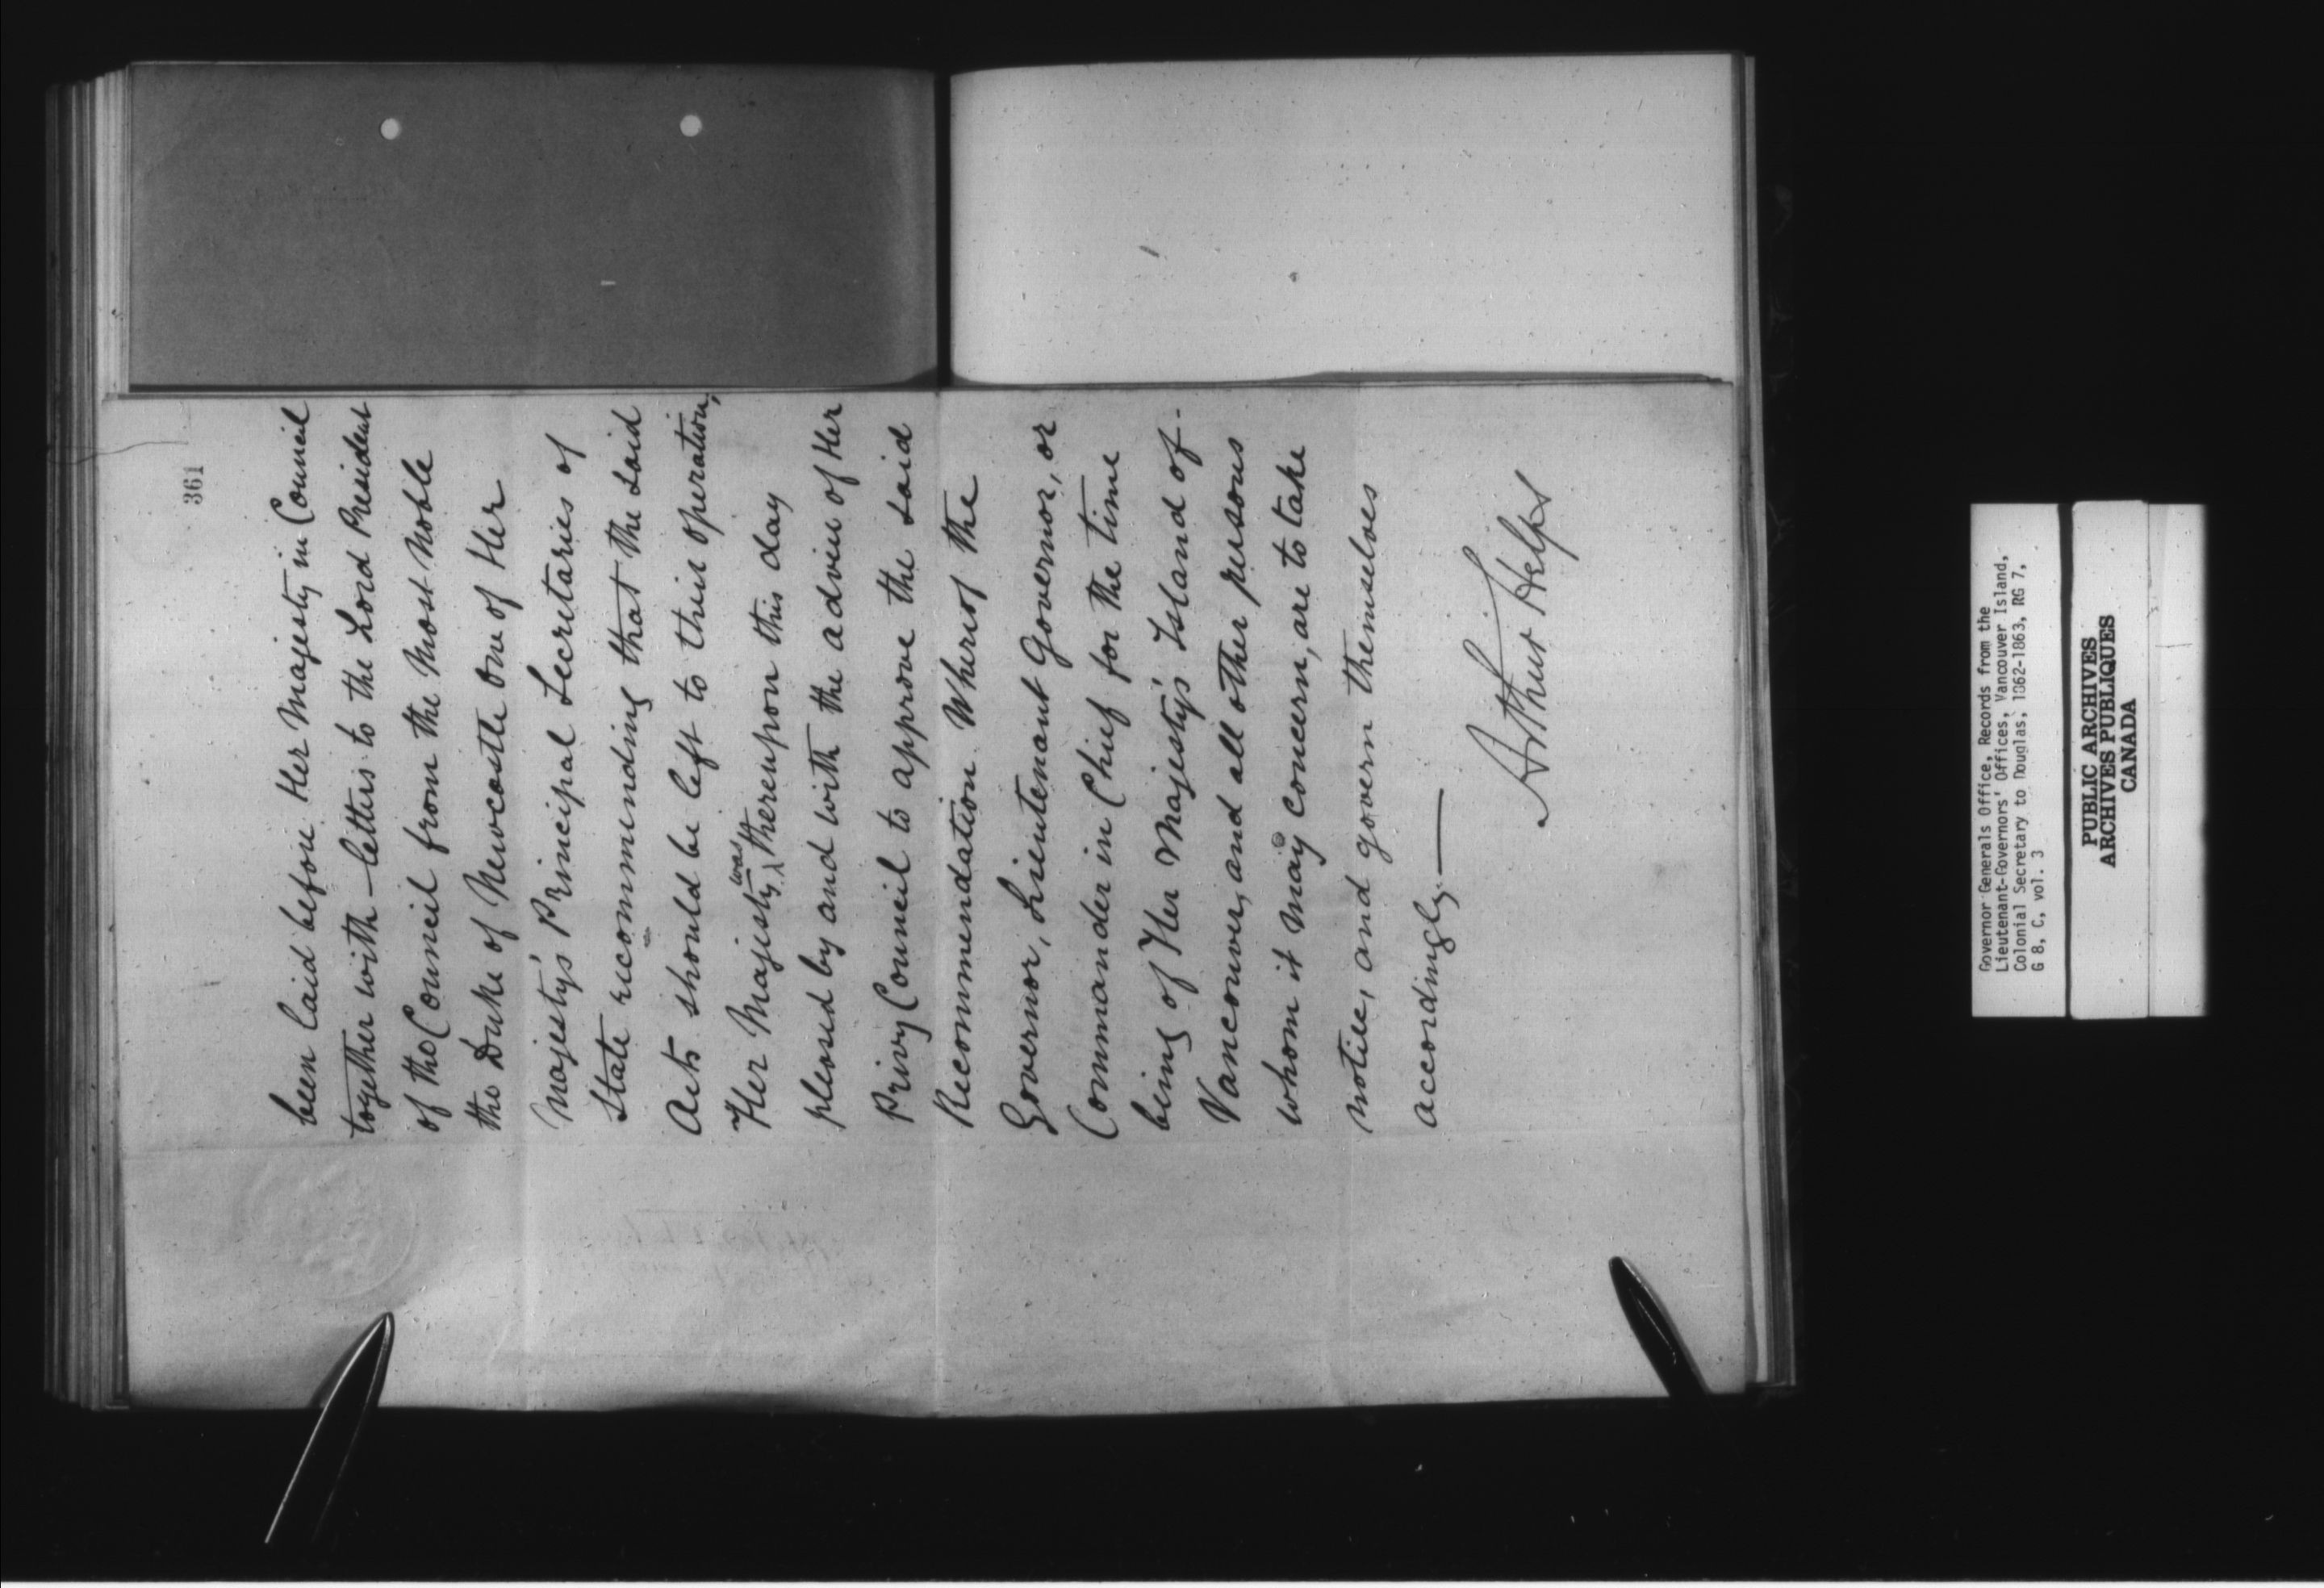 361
been laid before Her Majesty in Council
together with letters to the Lord President
of the Council from the Most Noble
the Duke of Newcastle one of Her
Majesty's Principal Secretaries of
State recommending that the said
Acts should be left to their operation,
Her Majesty was thereupon this day
pleased by and with the advice of Her
Privy Council to approve the said
Recommendation Whereof the
Governor, Lieutenant Governor, or
Commander in Chief for the time
being of Her Majesty's Island of
Vancouver, and all other persons
whom it may concern, are to take
notice, and govern themselves
accordingly.
Arthur Helps
Governor Generals Office, Records from the
Lieutenant-Governors' Offices, Vancouver Island,
Colonial Secretary to Douglas, 1862-1863, RG 7,
G 8, C, vol. 3
PUBLIC ARCHIVES
ARCHIVES PUBLIQUES
CANADA